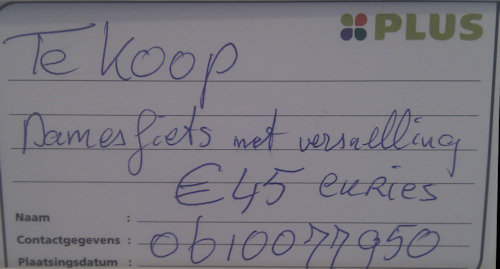 PLUS
Te Koop
Damesfiets met versnelling
€45 euries
Naam :
Contactgegevens : 0610077950
Plaatsingsdatum :